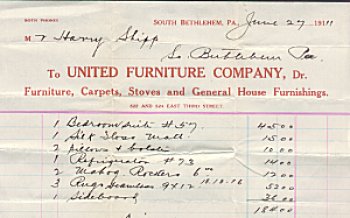 BOTH PHONES
SOUTH BETHLEHEM, PA., June 27 1911
Mr Harry Shipp
So Bethlehem Pa
To UNITED FURNITURE COMPANY, Dr.
Furniture, Carpets, Stoves and General House Furnishings.
522 AND 524 EAST THIRD STREET.
1 Bedroom Suite #57 45 00
1 Silk Floss Matt 15 00
2 pillows & bolster 10 00
1 Refrigerator #73 14 00
2 Mahog Rockers 6 00 12 00
3 Rugs Seamless 9x12 52 00
1 Sideboard 36 00
184 00